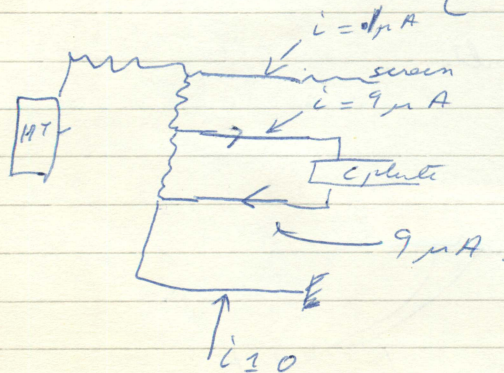 i = 1μA
screen
i = 9μA
HT
C plate
9μA
i ± 0